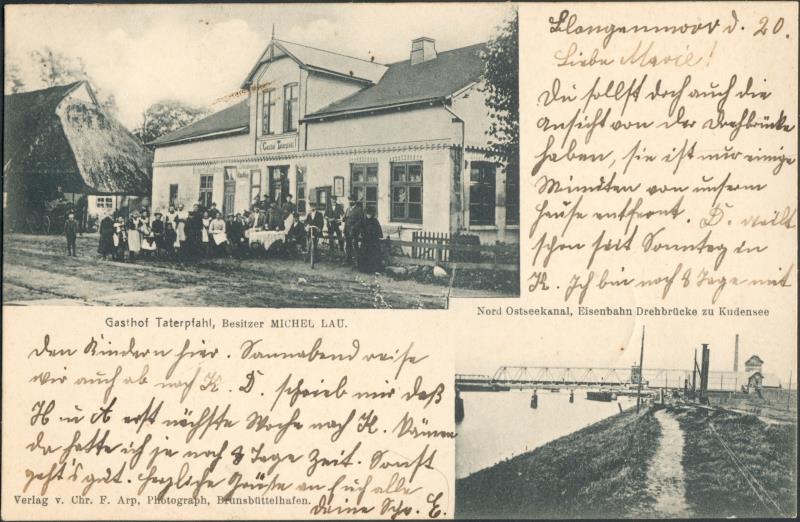 Blangenmoor d. 20.
Liebe Marie!
Du sollst doch auch die
Ansicht von der Drehbrücke
haben, sie ist nur einige
Minuten von unserm
Hause entfernt. D. weilt
schon seit Sonntag in
K. Ich bin noch 8 Tage mit
Gasthof Taterpfahl, Besitzer MICHEL LAU.
Nord Ostseekanal, Eisenbahn Drehbrücke zu Kudensee
den Kindern hier. Sonnabend reise
wir auch ab nach K. D. schrieb mir daß
H u A erst nächste Woche nach K. kämen
da hatte ich ja noch 8 Tage Zeit. Sonst
geht's gut. Herzliche Grüße an Euch alle
Deine Schw. E.
Verlag v. Chr. F. Arp, Photograph, Brunsbüttelhafen.